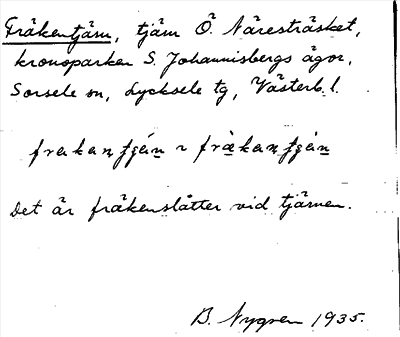 Fräkentjärn, tjärn Ö. Näresträsket,
kronoparken S. Johannisbergs ägor,
Sorsele sn, Lycksele tg, Västerb. l.
Det är fräkenslåtter vid tjärnen.
B. Nygren 1935.